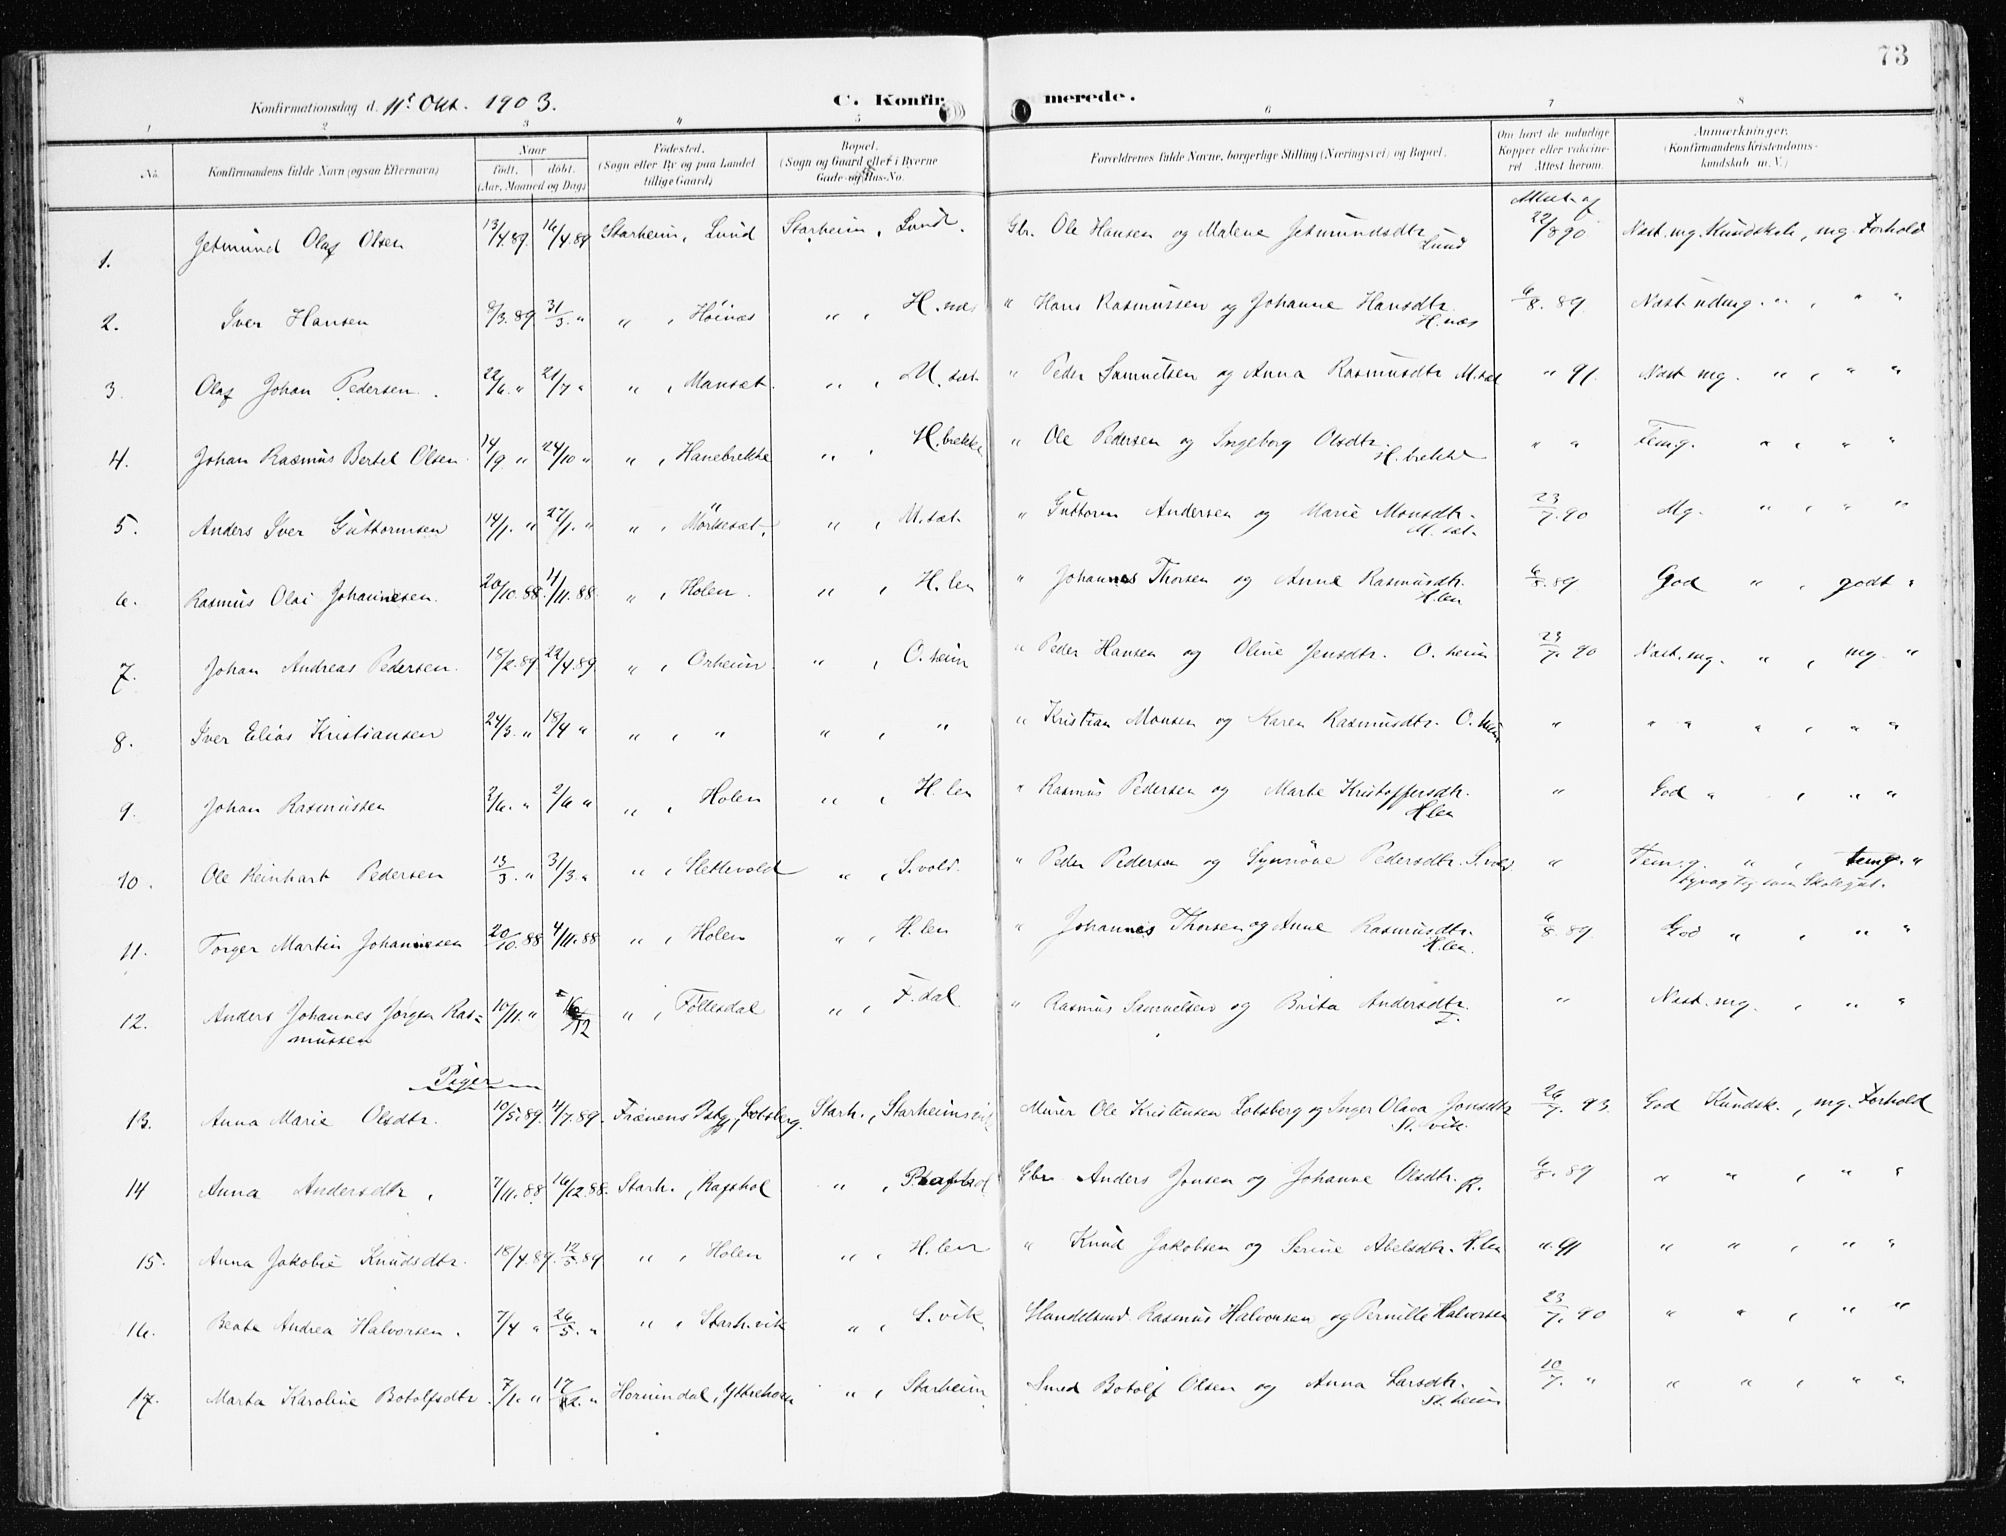 73
Konfirmationsdag d. 11te Okt. 1903. C. Konfirmerede.
1 2 3 4 5 6 7 8
No. Konfirmandens fulde Navn (ogsaa Efternavn) Naar født. døbt. (Aar, Maaned og Dag) Fødested. (Sogn eller By og paa Landet tillige Gaard) Bopæl. (Sogn og Gaard eller i Byerne Gade og Hus-No. Forældrenes fulde Navne, borgerlige Stilling (Næringsvei) og Bopæl. Om havt de naturlige Kopper eller vakcineret Attest herom. Anmærkninger. (Konfirmandens Kristendomskundskab m. V.)
1. Jetmund Olaf Olsen 13/4.89 16/4.89 Starheim, Lund Starheim, Lund. Gbr. Ole Hansen og Malene Jetmundsdtr. Lund Attest af 22/8 90 Nast. mg. Kundskab, mg. Forhold
2. Iver Hansen 9/3.89 31/3. " " , Höinæs " , H.næs " Hans Rasmussen og Johanne Hansdtr. H.næs 6/8. 89. Nast. udmg. " , " "
3. Olaf Johan Pedersen. 22/6. " 21/7 " " , Mansæt. " , M.sæt. " Peder Samuelsen og Anna Rasmusdtr M.sæt " 91. Nast mg. " , " "
4. Johan Rasmus Bertel Olsen. 14/9 " 24/10 " " , Hanebrekke " , H.brekke " Ole Pedersen og Ingeborg Olsdtr. H.brekke " " Temg. " , " "
5. Anders Iver Guttormsen 14/1. " 27/1. " " , Mörkesæt. " , M.sæt " Guttorm Andersen og Marie Monsdtr. M.sæt. 23/7.90 Mg. " , " "
6. Rasmus Olai Johannesen. 20/10.88. 4/11.88. " , Holen. " , H.len " Johannes Thorsen og Anne Rasmusdtr. H.len 6/8.89 God " , godt "
7. Johan Andreas Pedersen. 18/2.89 22/4.89 " , Orheim " , O.heim " Peder Hansen og Oline Jensdtr. O.heim 23/7. 90 Nast. mg. " , mg. "
8. Iver Elias Kristiansen 24/3. " 18/4 " " , " " , " " Kristian Monsen og Karen Rasmusdtr. O.heim " " " " , " "
9. Johan Rasmussen 2/6. " 2/6 " " , Holen " , H.len " Rasmus Pedersen og Marte Kristoffersdtr. H.len " God " , " "
10. Ole Reinhart Pedersen 13/3. " 31/3. " " , Slettevold " , S.vold. " Peder Pedersen og Synnöve Pedersdtr. S.vold. " Tem.g. " , temg. "
11. Torger Martin Johannesen 20/10.88 4/11.88 " , Holen " , H.len " Johannes Thorsen og Anne Rasmusdtr. H.len. 6/8.89. God " , " "
12. Anders Johannes Jørgen Ras= 10/11. " 16/12 " , Föllesdal " , F.dal. " Rasmus Samuelsen og Brita Andersdtr. F. " Nast. mg. , " "
mussen
Piger
13. Anna Marie Olsdtr. 10/5.89. 4/7.89. Frænens Pstgj., Lotsberg. Starh., Starheimsvik Murer Ole Kristensen Lotsberg og Inger Olava Jonsdtr St.vik. 26/7. 93. God Kundsk., mg. Forhold
14 Anna Andersdtr. 7/11.88 16/12.88. Starh., Ravshol " , Ravshol Gbr. Anders Jonsen og Johanne Olsdtr. R. 6/8.89 " " , " "
15. Anna Jakobie Knudsdtr. 18/4.89. 12/5.89 " , Holen " , H.len " Knud Jakobsen og Serine Abelsdtr. H.len ". 91 " " , " "
16. Beate Andrea Halvorsen. 7/4 " 26/5. " " , Starh.vik " , S.vik. Handelsmd. Rasmus Halvorsen og Pernille Halvorsen 23/7. 90 " " , " "
17. Marta Karoline Botolfsdtr. 7/1. " 17/2. " Hornindal, Ytrehorn " , Starheim Smed Botolf Olsen og Anna Larsdtr. St.heim 10/7. " " " , " "